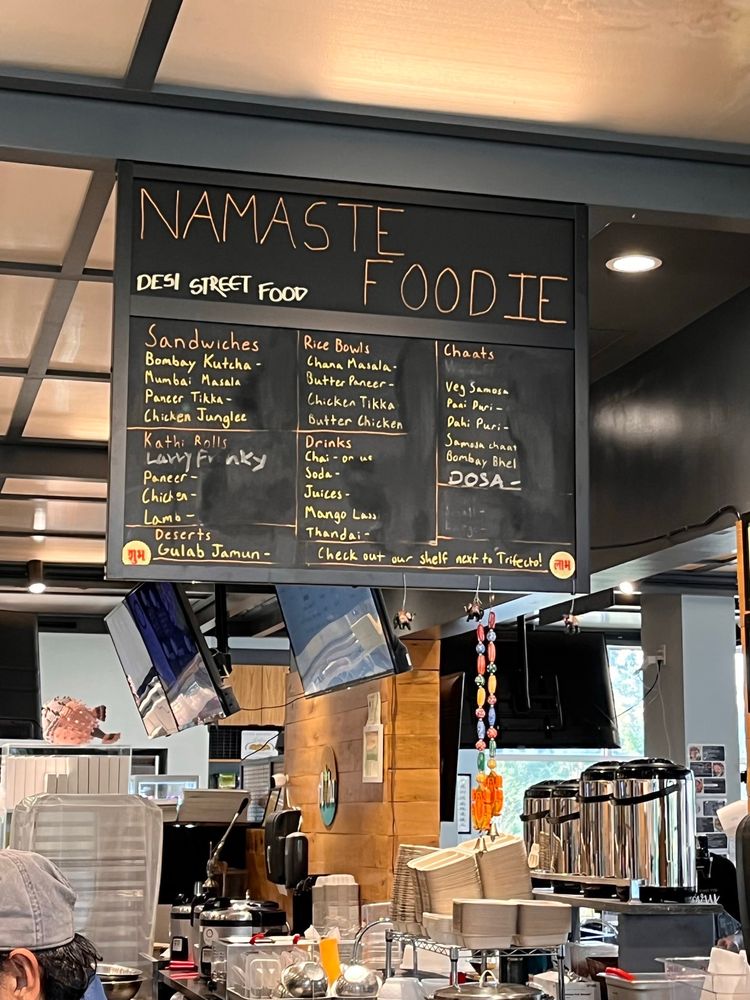 NAMASTE
FOODIE
DESI STREET FOOD
Sandwiches
Bombay Kutcha -
Mumbai Masala
Paneer Tikka -
Chicken Junglee
Kathi Rolls
Paneer -
Chicken -
Lamb -
Deserts
Gulab Jamun -
Rice Bowls
Chana Masala -
Butter Paneer -
Chicken Tikka
Butter Chicken
Drinks
Chai -
Soda -
Juices -
Mango Lassi
Thandai -
Chaats
Veg Samosa
Pani Puri -
Dahi Puri -
Samosa chaat
Bombay Bhel
DOSA -
Check out our shelf next to Trifecto!
शुभ
लाभ